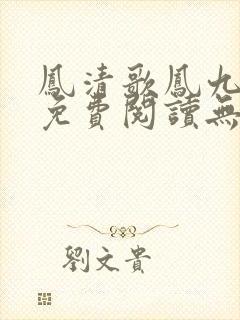 鳳清歌鳳九
免費閱讀無
劉文貴